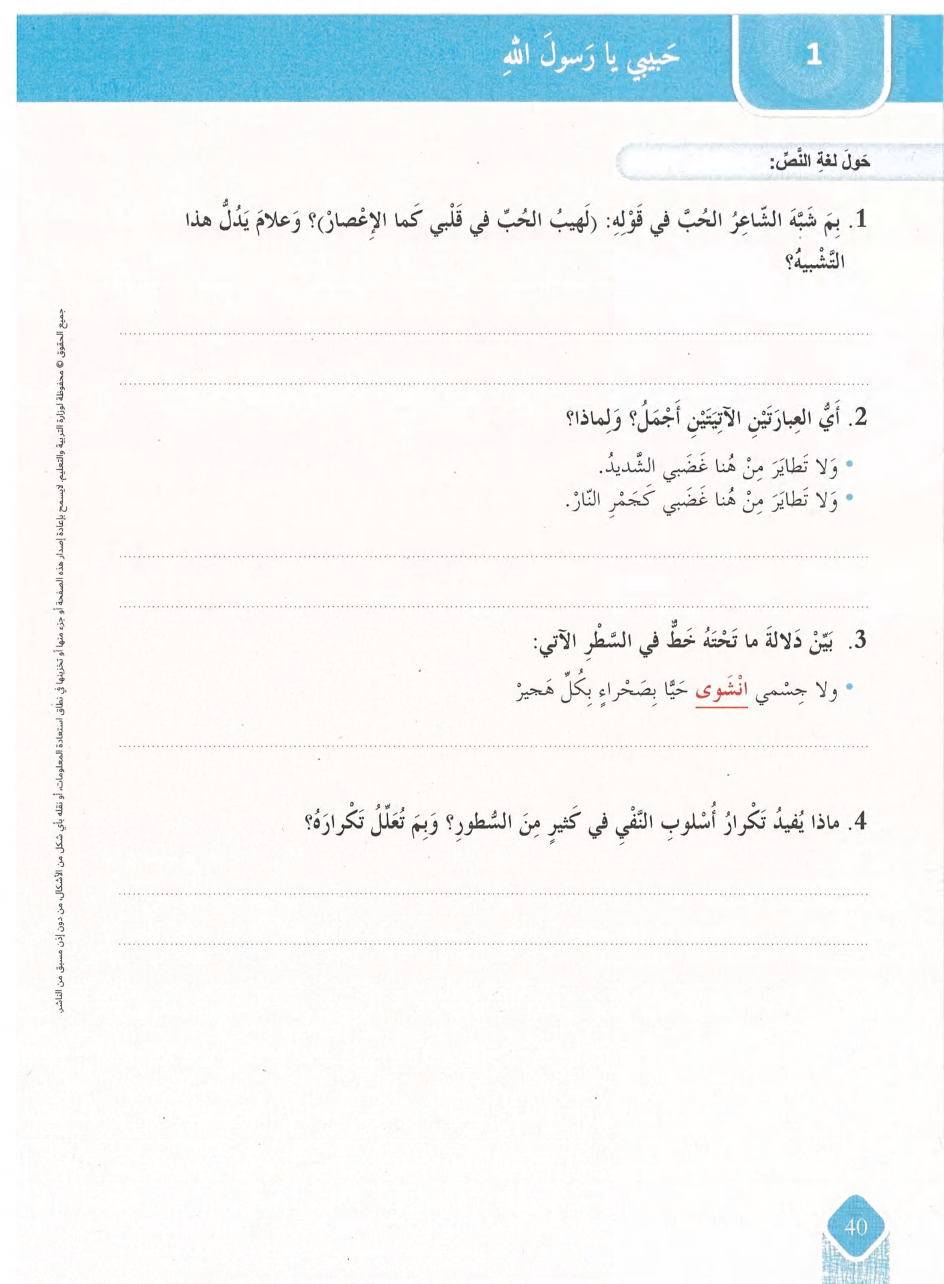 1
حَبيبي يا رَسولَ اللهِ
حَولَ لغةِ النَّصِّ:
1. بِمَ شَبَّهَ الشّاعِرُ الحُبَّ في قَوْلِهِ: (لَهيبُ الحُبِّ في قَلْبي كَما الإِعْصارْ)؟ وَعلامَ يَدُلُّ هذا
التَّشْبيهُ؟
2. أَيُّ العِبارَتَيْنِ الآتِيَتَيْنِ أَجْمَلُ؟ وَلِماذا؟
• وَلا تَطايَرَ مِنْ هُنا غَضَبي الشَّديدُ.
• وَلا تَطايَرَ مِنْ هُنا غَضَبي كَجَمْرِ النّارْ.
3. بَيِّنْ دَلالةَ ما تَحْتَهُ خَطٌّ في السَّطْرِ الآتي:
• ولا جِسْمي انْشَوى حَيًّا بِصَحْراءٍ بِكُلِّ هَجيرْ
4. ماذا يُفيدُ تَكْرارُ أُسْلوبِ النَّفْيِ في كَثيرٍ مِنَ السُّطورِ؟ وَبِمَ تُعَلِّلُ تَكْرارَهُ؟
جميع الحقوق © محفوظة لوزارة التربية والتعليم. لايسمح بإعادة إصدار هذه الصفحة أو جزء منها أو تخزينها في نطاق استعادة المعلومات، أو نقله بأي شكل من الأشكال، من دون إذن مسبق من الناشر.
40